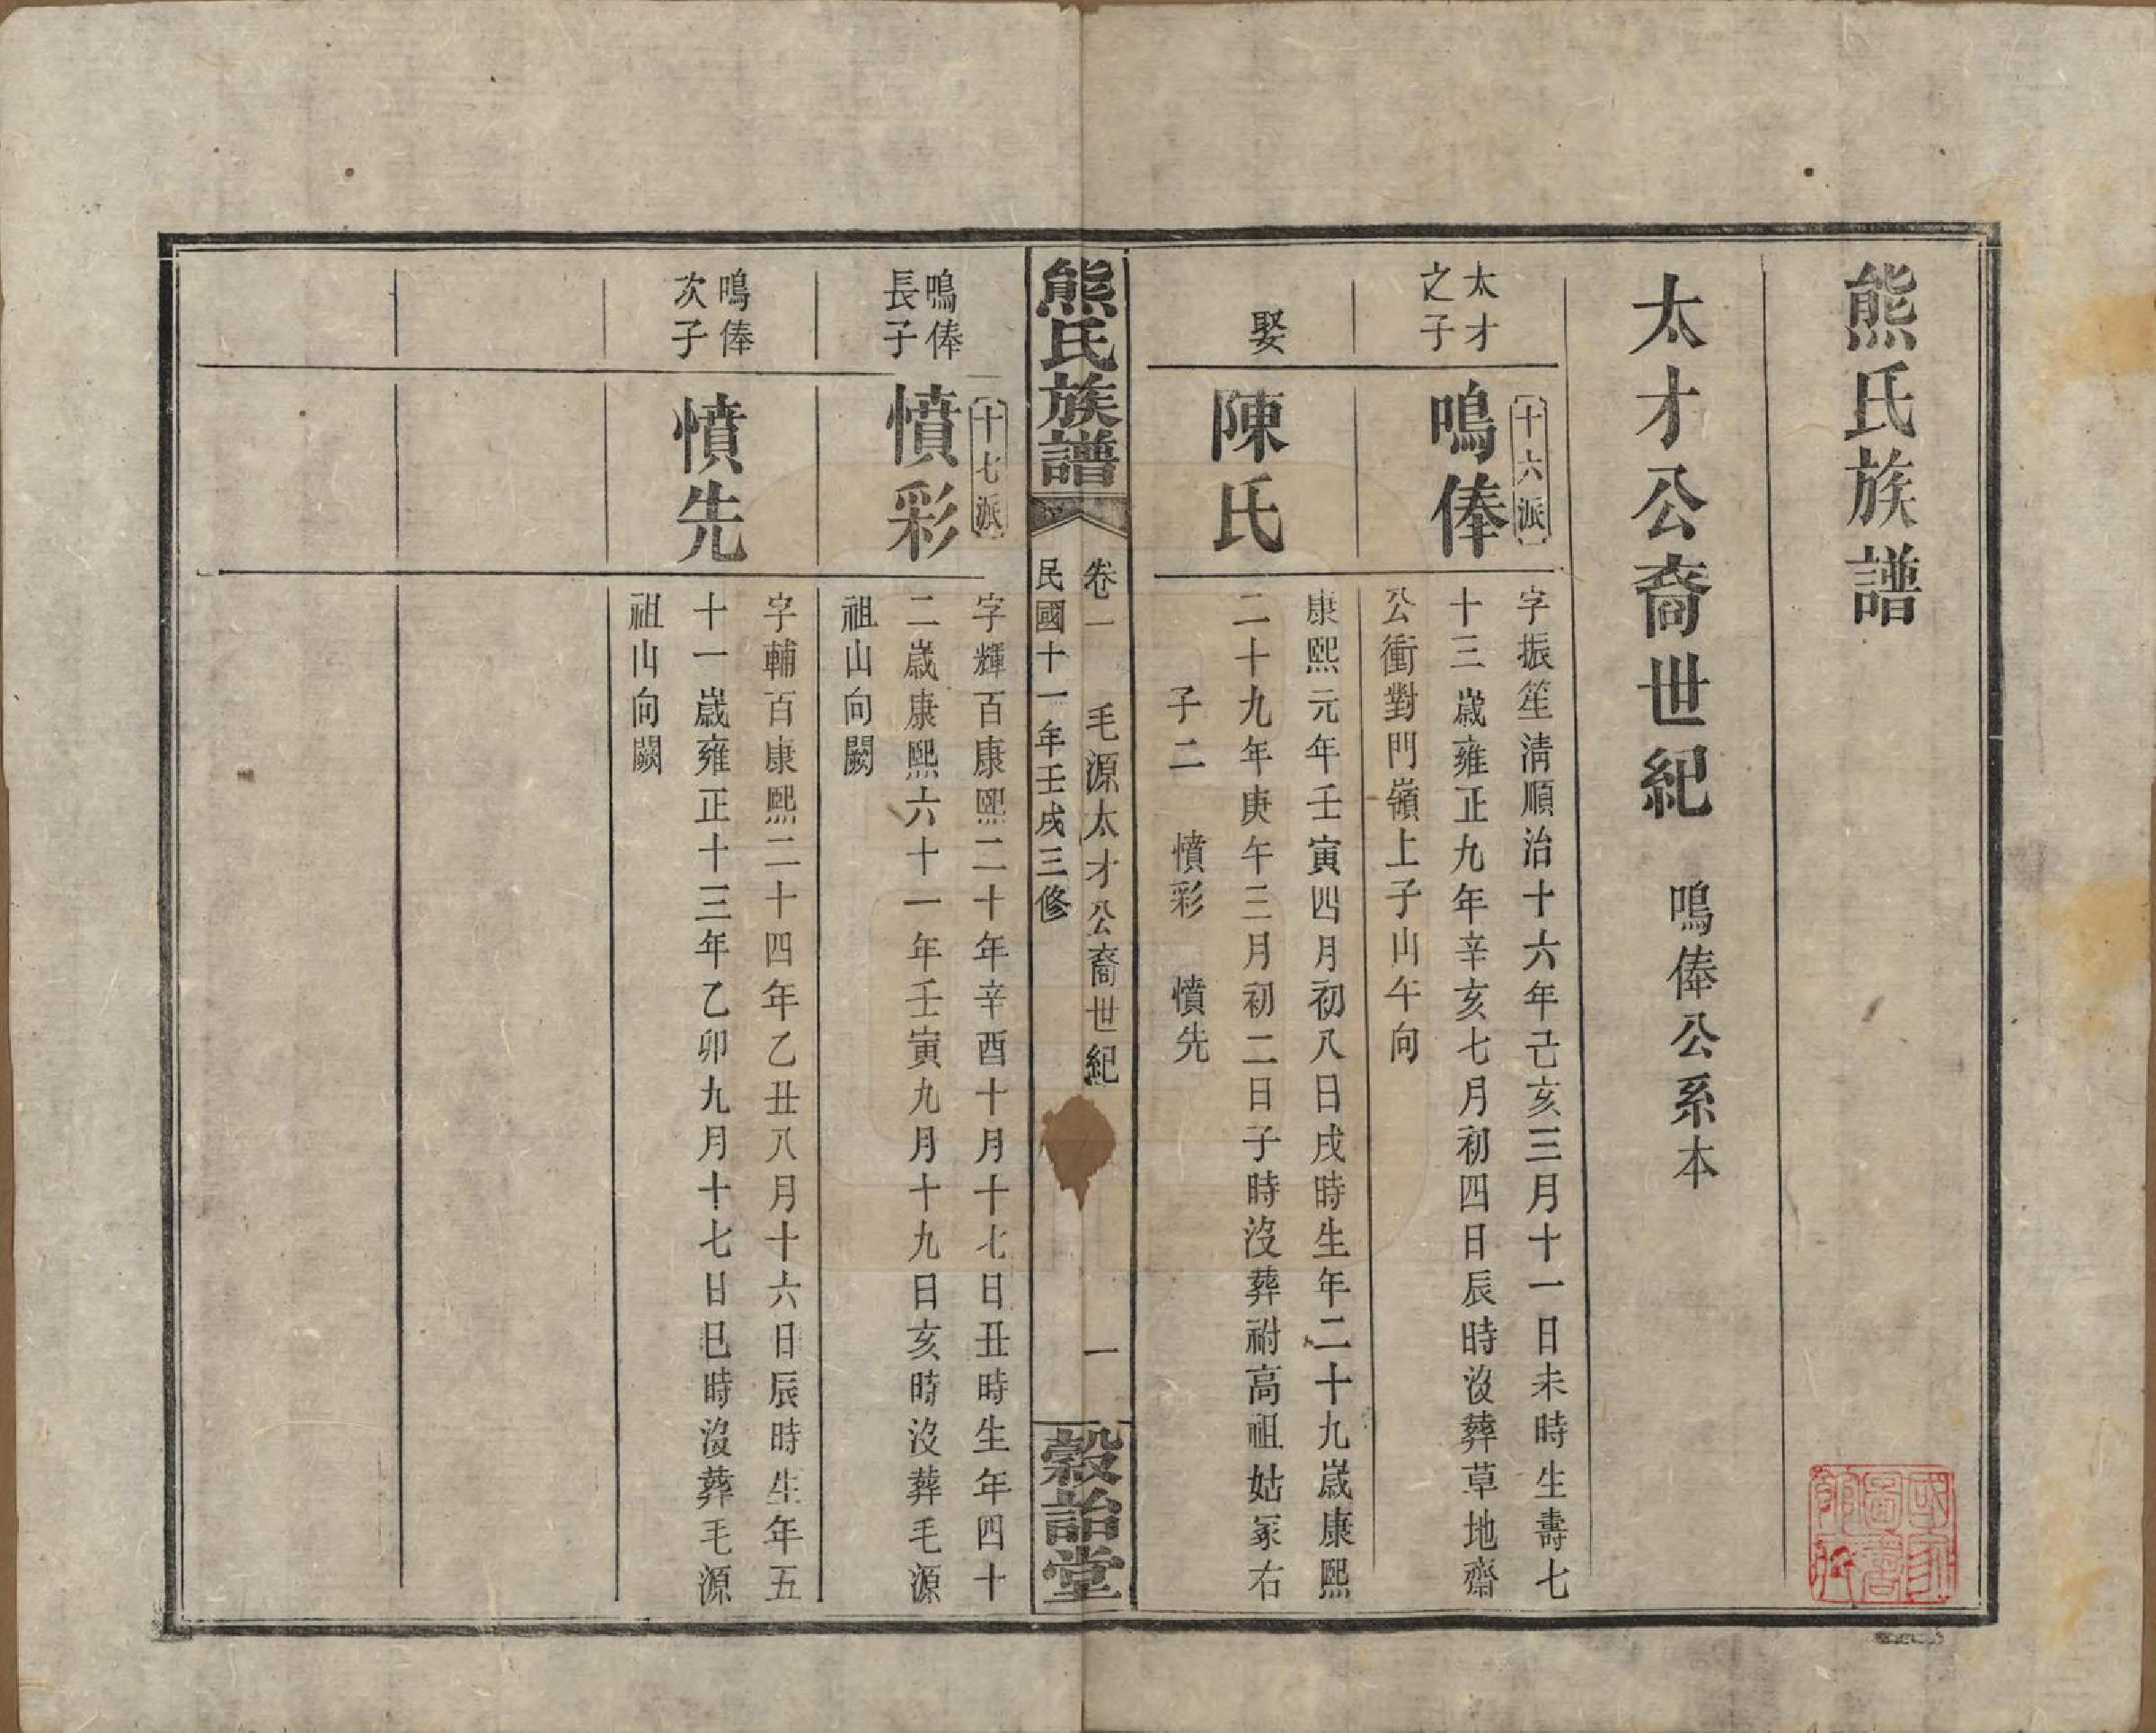 熊氏族譜
太才公裔世紀 鳴俸公系本
太才之子
十六派
鳴俸
字振笙淸順治十六年己亥三月十一日未時生壽七
十三歲雍正九年辛亥七月初四日辰時沒葬草地齋
公衝對門嶺上子山午向
娶
陳氏
康熙元年壬寅四月初八日戌時生年二十九歲康熙
二十九年庚午三月初二日子時沒葬祔高祖姑冢右
子二 憤彩 憤先
熊氏族譜
卷一 毛源太才公裔世紀 一
民國十一年壬戌三修
穀詒堂
鳴俸長子
十七派
憤彩
字輝百康熙二十年辛酉十月十七日丑時生年四十
二歲康熙六十一年壬寅九月十九日亥時沒葬毛源
祖山向闕
鳴俸次子
憤先
字輔百康熙二十四年乙丑八月十六日辰時生年五
十一歲雍正十三年乙卯九月十七日巳時沒葬毛源
祖山向闕